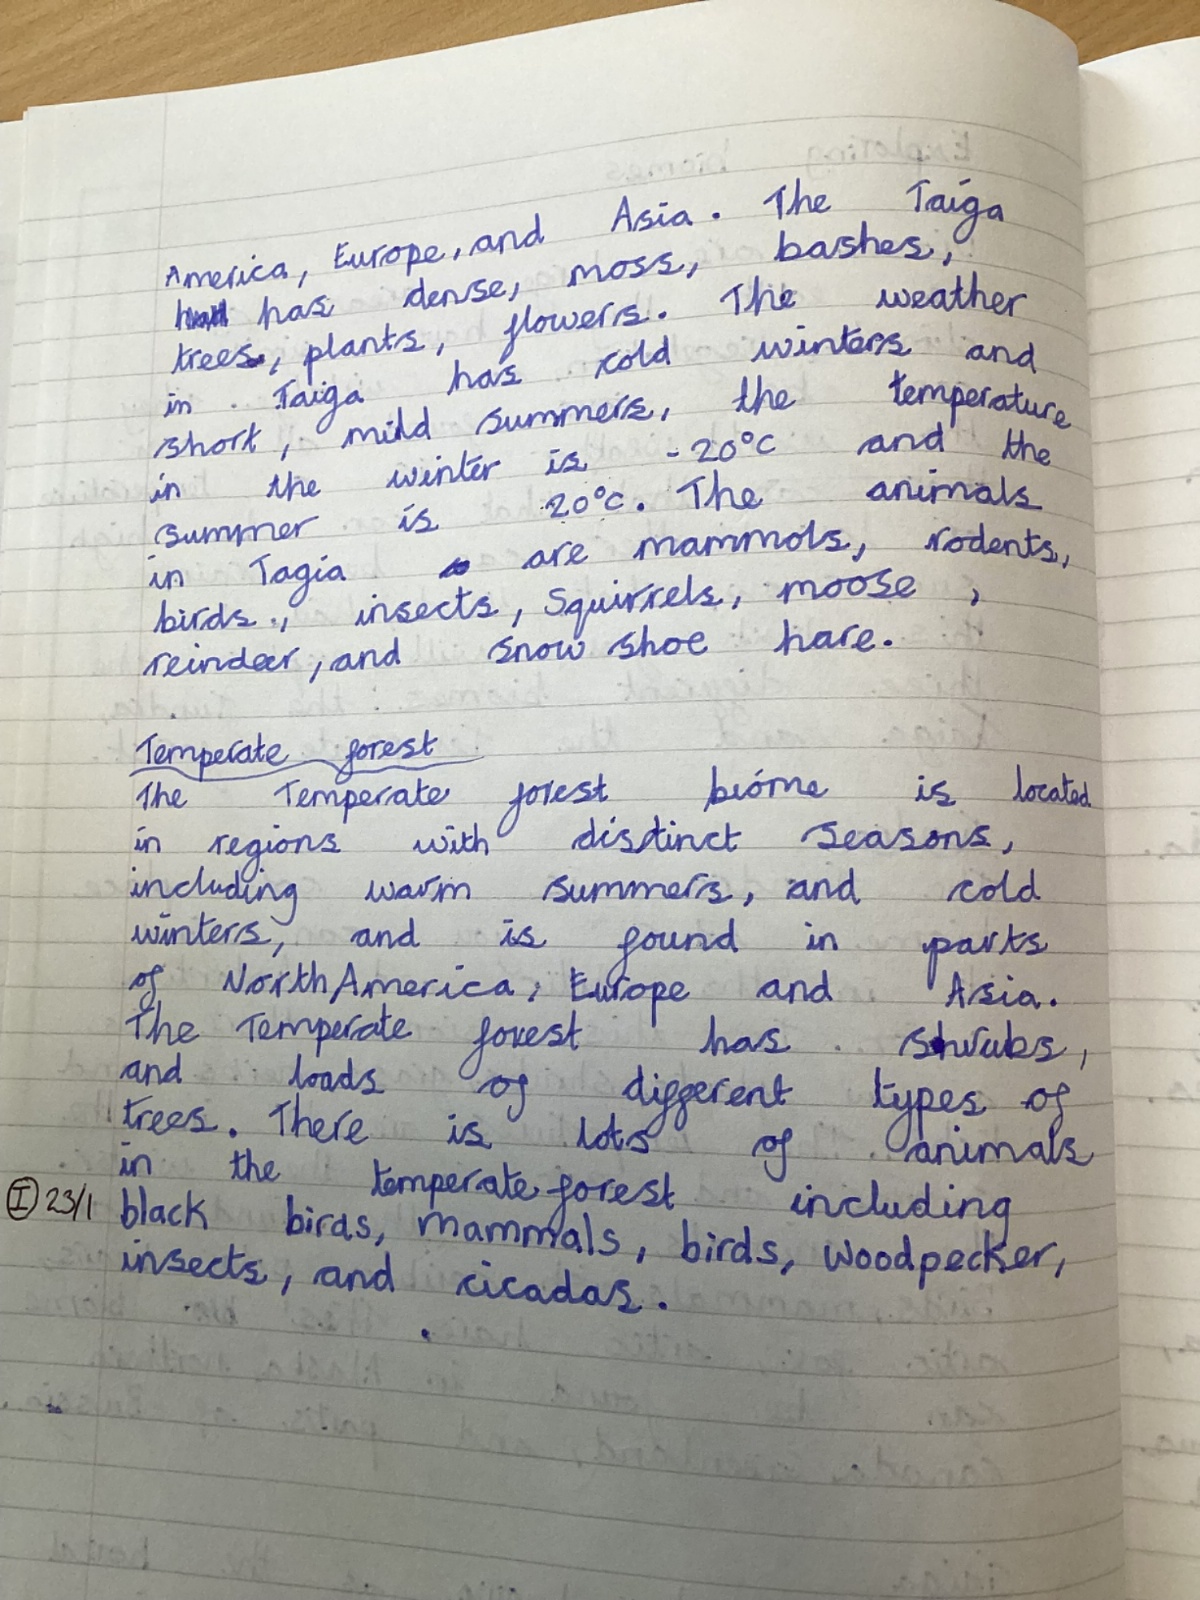 America, Europe, and Asia. The Taiga
has dense, moss, bashes,
trees, plants, flowers. The weather
in Taiga has cold winters and
short, mild summers, the temperature
in the winter is -20°C and the
summer is 20°C. The animals
in Tagia are mammols, rodents,
birds, insects, Squirrels, moose,
reindeer, and snow shoe hare.
Temperate forest
The Temperate forest biome is located
in regions with distinct seasons,
including warm summers, and cold
winters, and is found in parts
of North America, Europe and Asia.
The Temperate forest has shrubs,
and loads of different types of
trees. There is lots of animals
in the temperate forest including
I 23/1 black birds, mammals, birds, woodpecker,
insects, and cicadas.